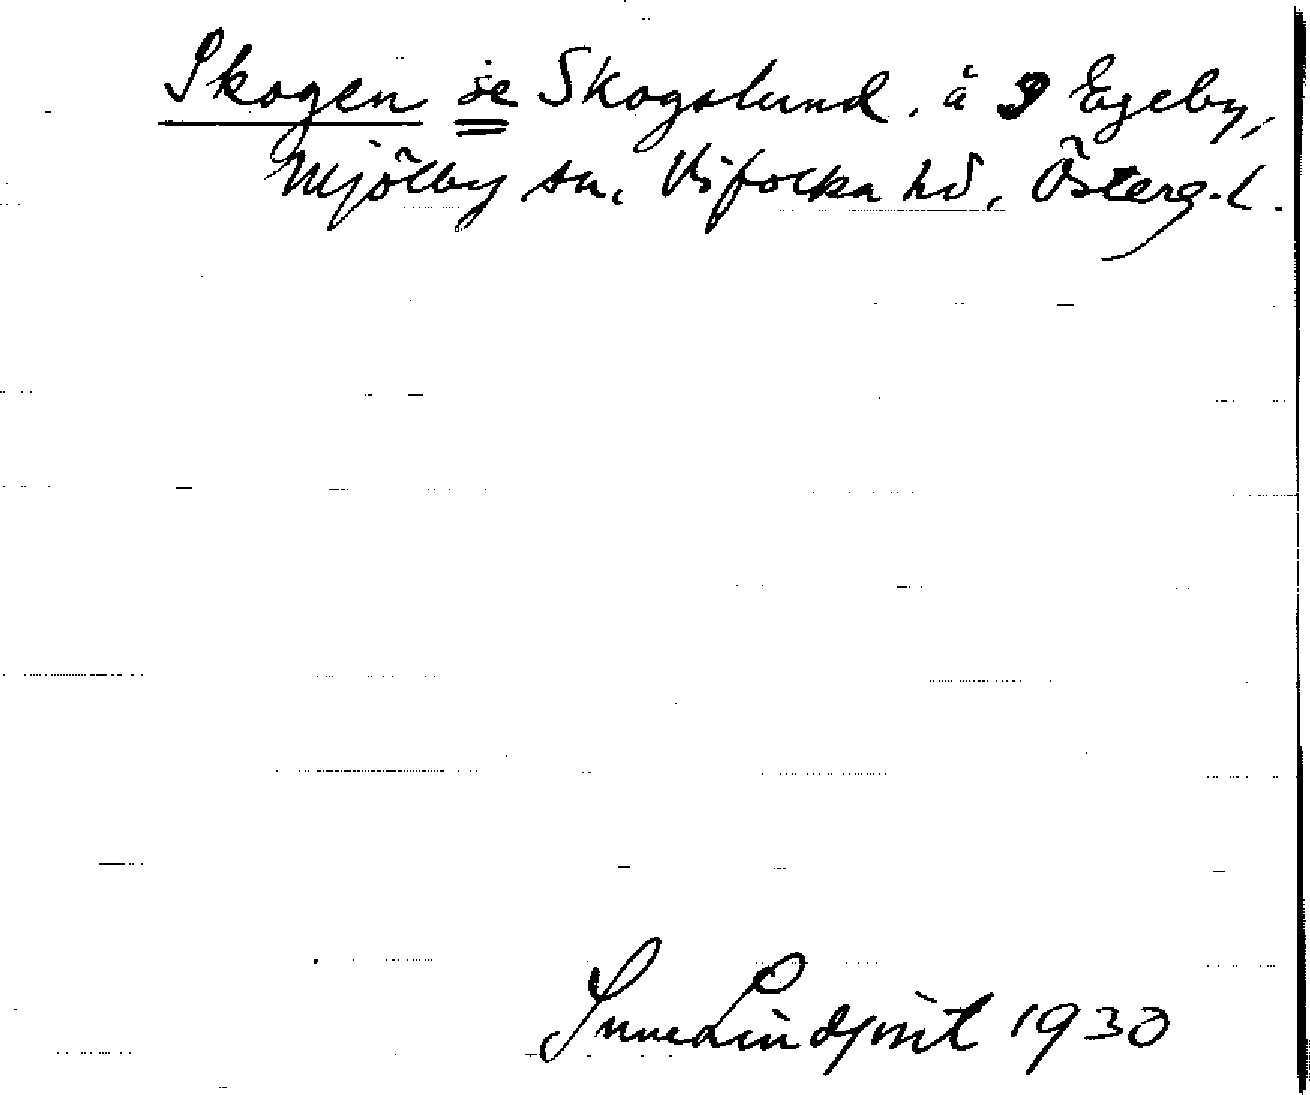 Skogen se Skogslund. å 9 Egeby,
Mjölby sn, Vifolka hd, Österg.l.
Sune Lindqvist 1930